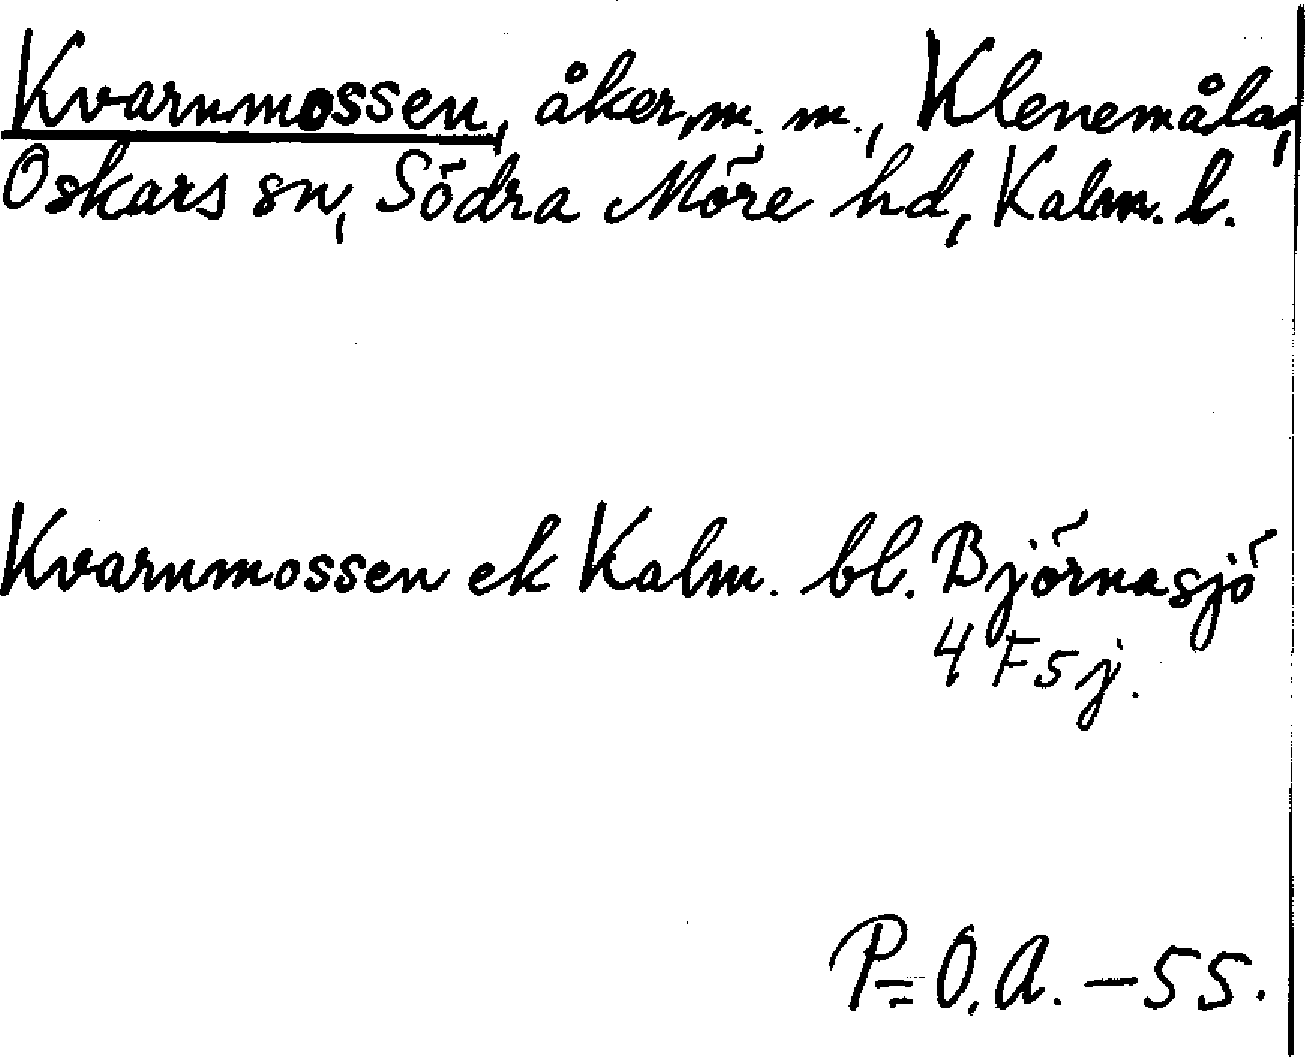 Kvarnmossen, åker, m. m., Klenemåla,
Oskars sn, Södra Möre hd, Kalm. l.
Kvarnmossen ek Kalm. bl. Björnasjö
4 F 5 j.
P=O.A. – 55.